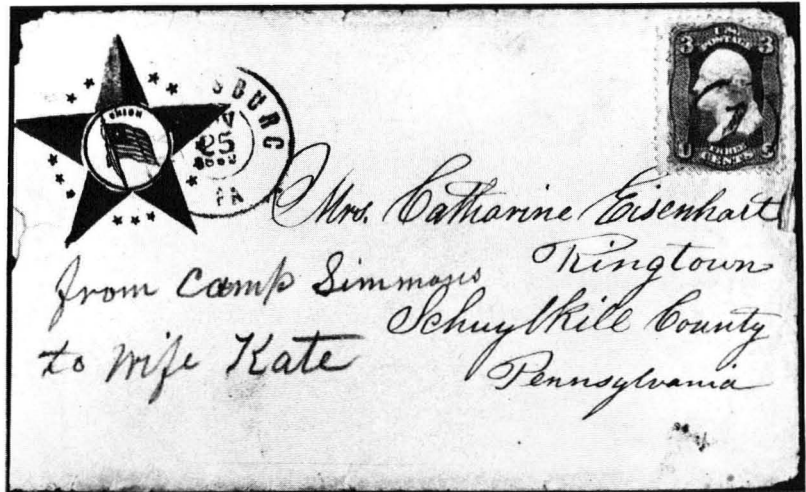 UNION
SBURG
PA
U.S.
POSTAGE
3 3
THREE
U CENTS S
Mrs. Catharine Eisenhart
Ringtown
Schuylkill County
Pennsylvania
from Camp Simmons
to Wife Kate